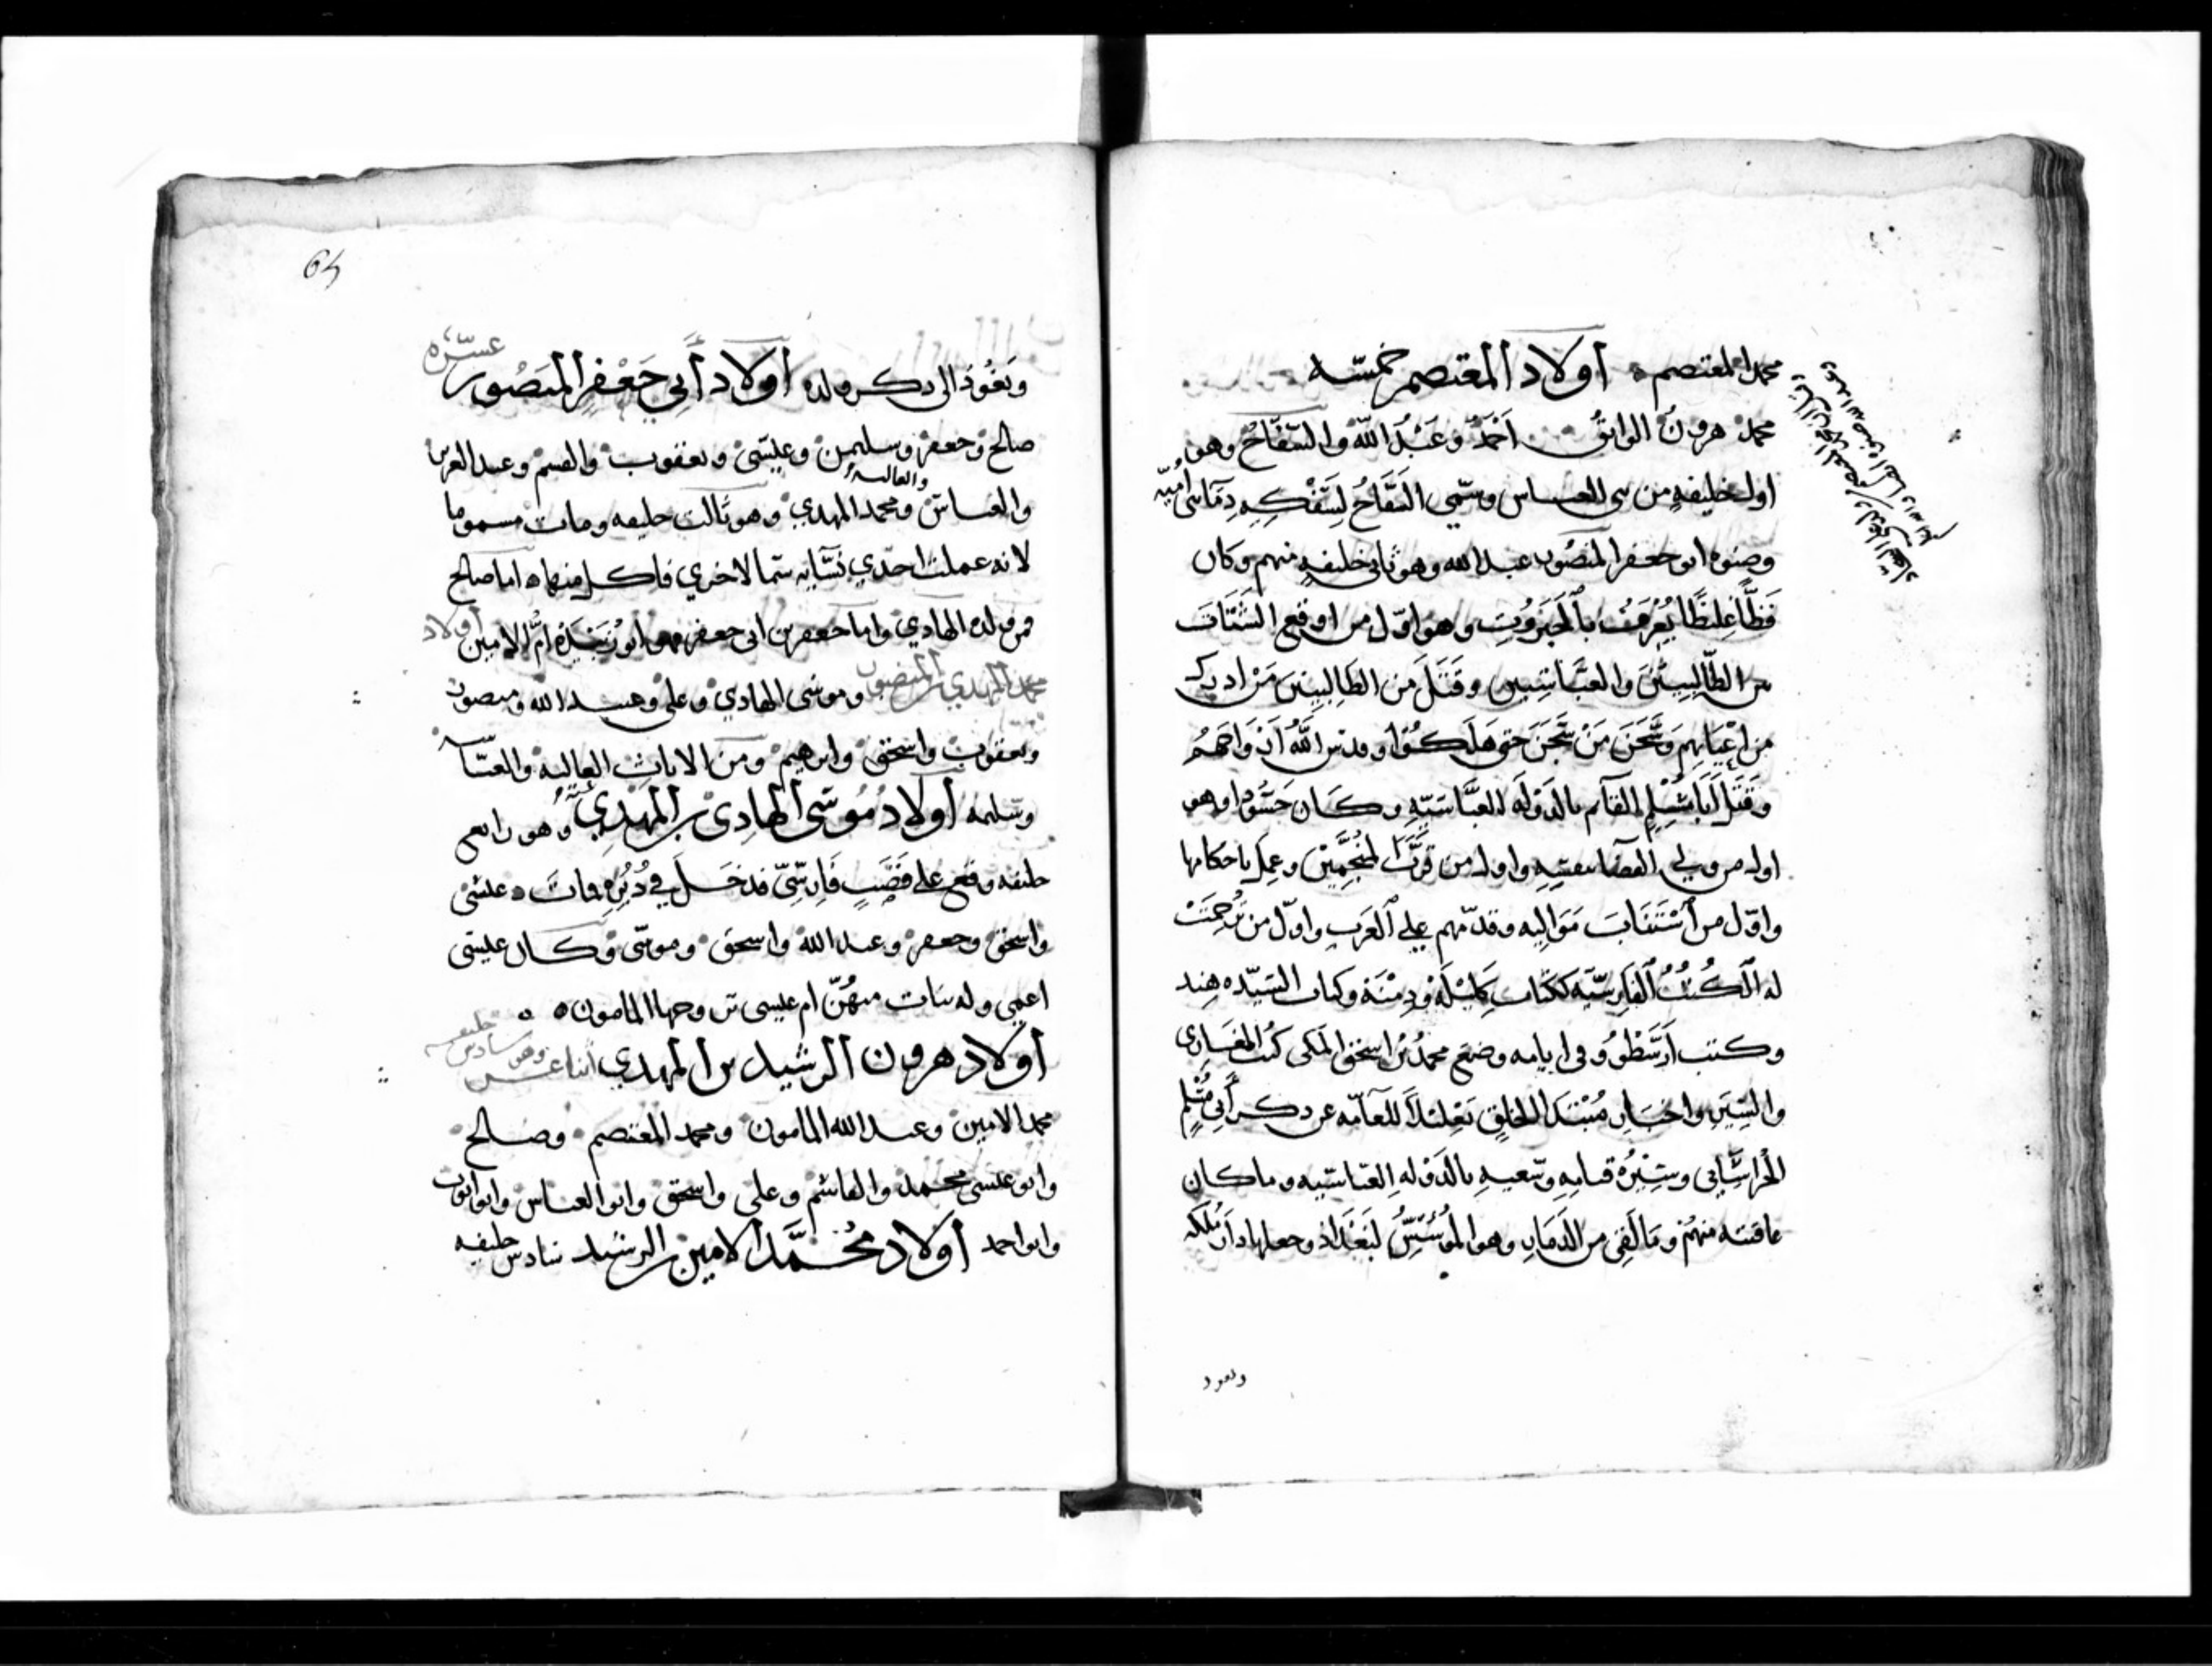 محمد المعتصم ٥ أولاد المعتصم خمسّه
محمد هرون الواثق احمد وعبد الله والسفاح وهو
اول خليفه من بنى العباس وسمي السفاح لسفكه دماء بنى أميّه
وصنوه ابو جعفر المنصور عبد الله وهو ثانى خليفه منهم وكان
فظّاً غليظًا يعرف بالجبروت وهو اوّل من اوقع الشتات
بين الطالبيين والعباسيين وقتل من الطالبيين من ادرك
من اعيانهم وسجن من سجن حتى هلكوا وقدس الله ارواحهم
وقتل ابا مسلم القآم بالدوله العباسيه وكان حسودا وهو
اول من ولي القضا بنفسه واول من قرّب المنجمين وعمل باحكامها
واوّل من استناب مواليه وقدمهم علي العرب واوّل من ترجمت
له الكتب الفارسيه ككتاب كليله ودمنة وكتاب السيده هند
وكتب ارسطو وفى ايامه وضع محمد بن اسحق المكى كتب المغازى
والسير واخبار مبتدا الخلق تعليلاً للعامّه عن ذكر أبى مسلم
الخراساني وسيره قيامه وسعيه بالدوله العباسيه وما كان
عاقبته منهم وما لقى من الدمار وهو المؤسّس لبغداد وجعلها دار ملكه
ونعود
64
ونعود الى ذكر ولده أولاد أبي جعفر المنصور عشره
صالح وجعفر وسليمن وعيسى ويعقوب والقسم وعبد العزيز
والعاليه
والعباس ومحمد المهدي وهو ثالث خليفه ومات مسموما
لانه عملت احدي نسآيه سما لاخري فاكل منها ٥ اما صالح
فمن ولده الهادي واما جعفر بن ابى جعفر فهو ابو زبيدة أمّ الامين أولاد
محمد المهدي بن المنصور وموسى الهادي وعلى وعبيد الله ومنصور
ويعقوب واسحق وابرهيم ومن الاناث العاليه والعباسه
وسليمه أولاد موسى الهادى بن المهدي وهو رابع
خليفه وقع على قضيب فارسي فدخل في دبره فمات ٥ عيسى
واسحق وجعفر وعبد الله واسحق وموسى وكان عيسى
اعمي وله بنات منهنّ ام عيسى تزوجها المامون ٥ ٥
أولاد هرون الرشيد بن المهدي اثنا عشر وهو سادس خليفه
محمد الامين وعبد الله المامون ومحمد المعتصم وصالح
وابو عيسى محمد والقاسم وعلى واسحق وابو العباس وابو ايوب
وابو احمد أولاد محمّد الامين بن الرشيد سادس خليفه